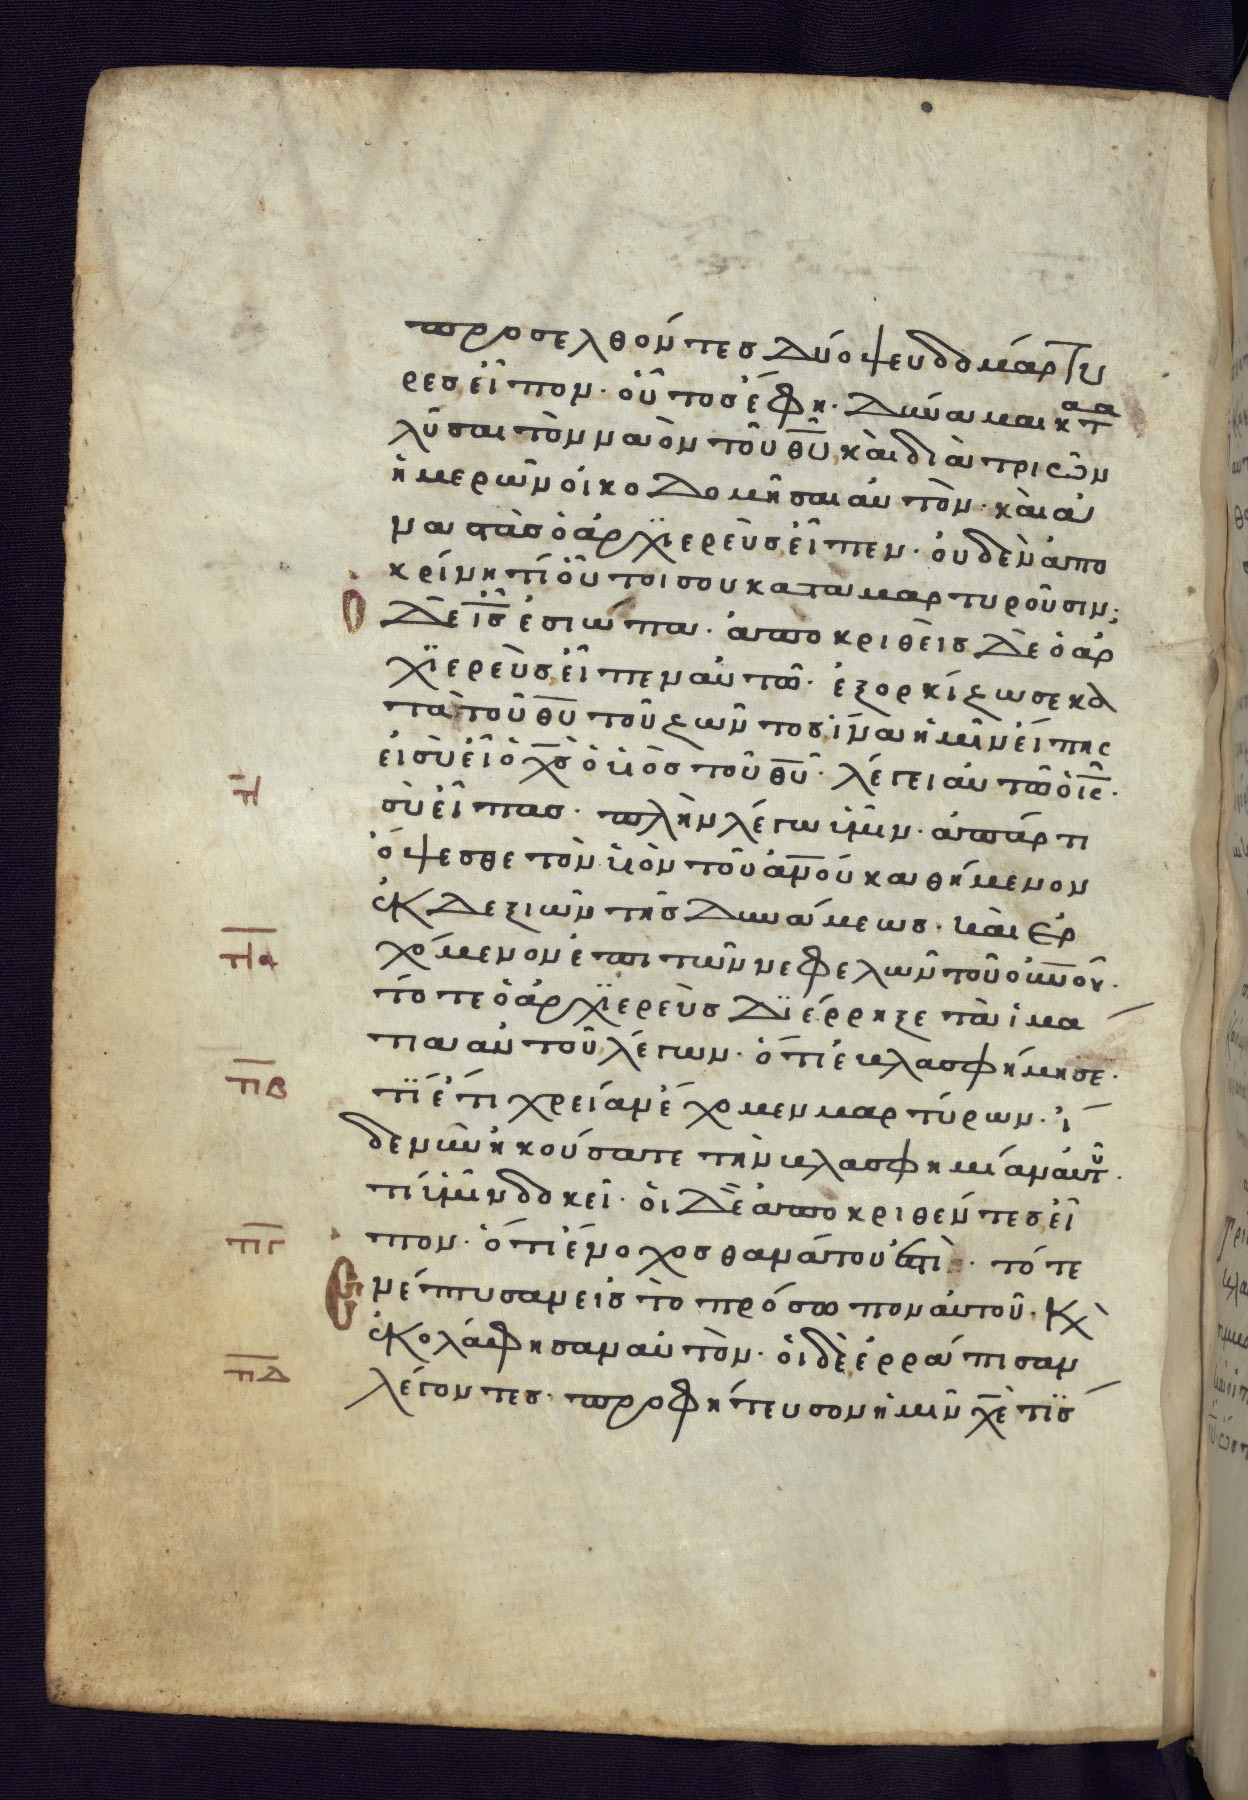 προσελθόντες δύο ψευδομάρτυ
ρες εἶπον· οὗτος ἔφη· δύναμαι κατα
λῦσαι τὸν ναὸν τοῦ θ̅υ̅ καὶ διὰ τριῶν
ἡμερῶν οἰκοδομῆσαι αὐτὸν· καὶ ἀ
ναστὰς ὁ ἀρχϊερεὺς εἶπεν· οὐδὲν ἀπο
κρίνη τί οὗτοι σου καταμαρτυροῦσιν;
Ὁ δὲ ι̅ς̅ ἐσιώπα· ἀποκριθεὶς δὲ ὁ ἀρ
χϊερεὺς εἶπεν αὐτῶ· ἐξορκίζω σε κα
τὰ τοῦ θ̅υ̅ τοῦ ζῶντος ἵνα ἡμῖν εἴπης
εἰ σὺ εἶ ὁ χ̅ς̅ ὁ υἱὸς τοῦ θ̅υ̅· λέγει αὐτῶ ὁ ι̅ς̅·
π̅
σὺ εἶπας· πλὴν λέγω ὑμῖν· ἀπάρτι
ὄψεσθε τὸν υἱὸν τοῦ α̅ν̅ου καθήμενον
ἐκ δεξιῶν τῆς δυνάμεως· καὶ ἐρ
π̅α̅
χόμενον ἐπι τῶν νεφελῶν τοῦ ο̅υ̅νοῦ·
τότε ὁ ἀρχϊερεὺς δϊέρρηξε τὰ ἱμά
τια αὐτοῦ λέγων· ὅτι ἐβλασφήμησε·
π̅β̅
τΐ ἔτι χρείαν ἔχομεν μαρτύρων· ἴ
δε νῦν ἠκούσατε τὴν βλασφημίαν αὐτοῦ·
τί ὑμῖν δοκεῖ· οἱ δὲ ἀποκριθέντες εἶ
π̅γ̅
πον· ὅτι ἔνοχος θανάτου ἐστὶ· τότε
Ἐνέπτυσαν εἰς το πρόσωπον αὐτοῦ· κὲ
ἐκολάφησαν αὐτὸν· οἱ δὲ ἐρράπισαν
π̅δ̅
λέγοντες· προφήτευσον ἡμῖν χ̅ὲ̅ τΐς